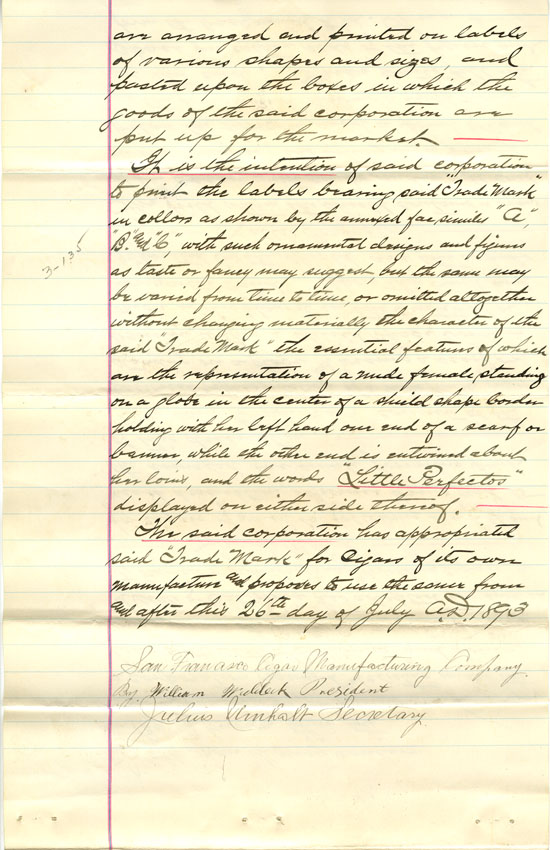 are arranged and printed on labels
of various shapes and sizes, and
pasted upon the boxes in which the
goods of the said corporation are
put up for the market.
It is the intention of said corporation
to print the labels bearing said "Trade Mark"
in collors as shown by the annexed fac similes "A",
"B," and "C", with such ornamental designs and figures
as taste or fancy may suggest, but the same may
be varied from time to time, or omitted altogether
without changing materially the character of the
said "Trade Mark" the essential features of which
are the representation of a nude female, standing
on a globe in the center of a shield shape border
holding with her left hand one end of a scarf or
banner, while the other end is entwined about
her loins, and the words "Little Perfectos"
displayed on either side thereof.
The said corporation has appropriated
said "Trade Mark" for Cigars of its own
manufacture and proposes to use the same from
and after this 26th day of July A.D. 1893
San Francisco Cigar Manufacturing Company
By William President
Julius Secretary
3-135